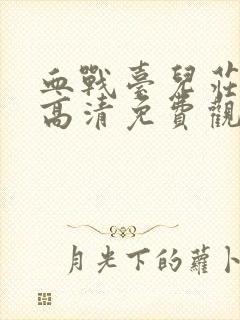 血戰臺兒莊
高清免費觀
月光下的蘿卜